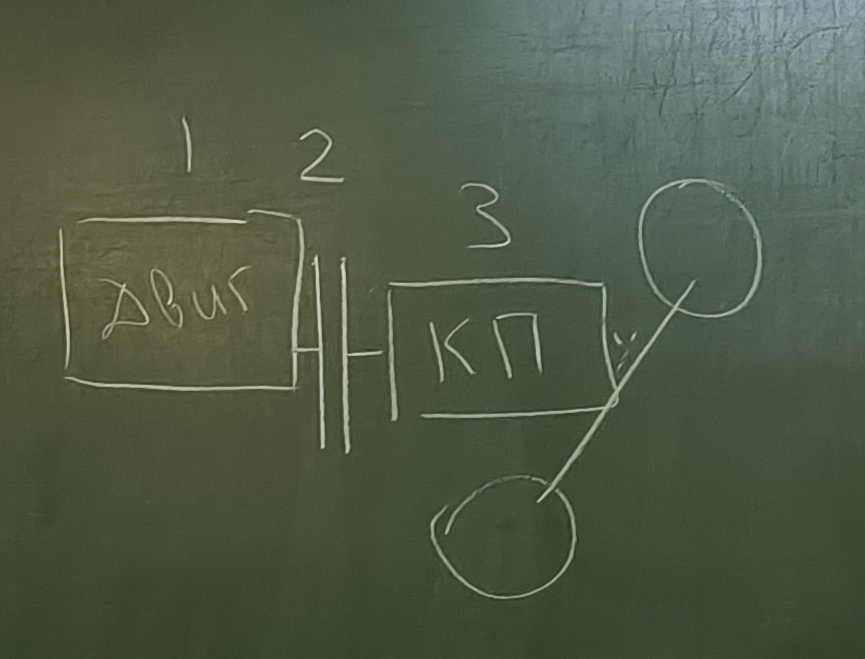 1
2
3
двиг
КП